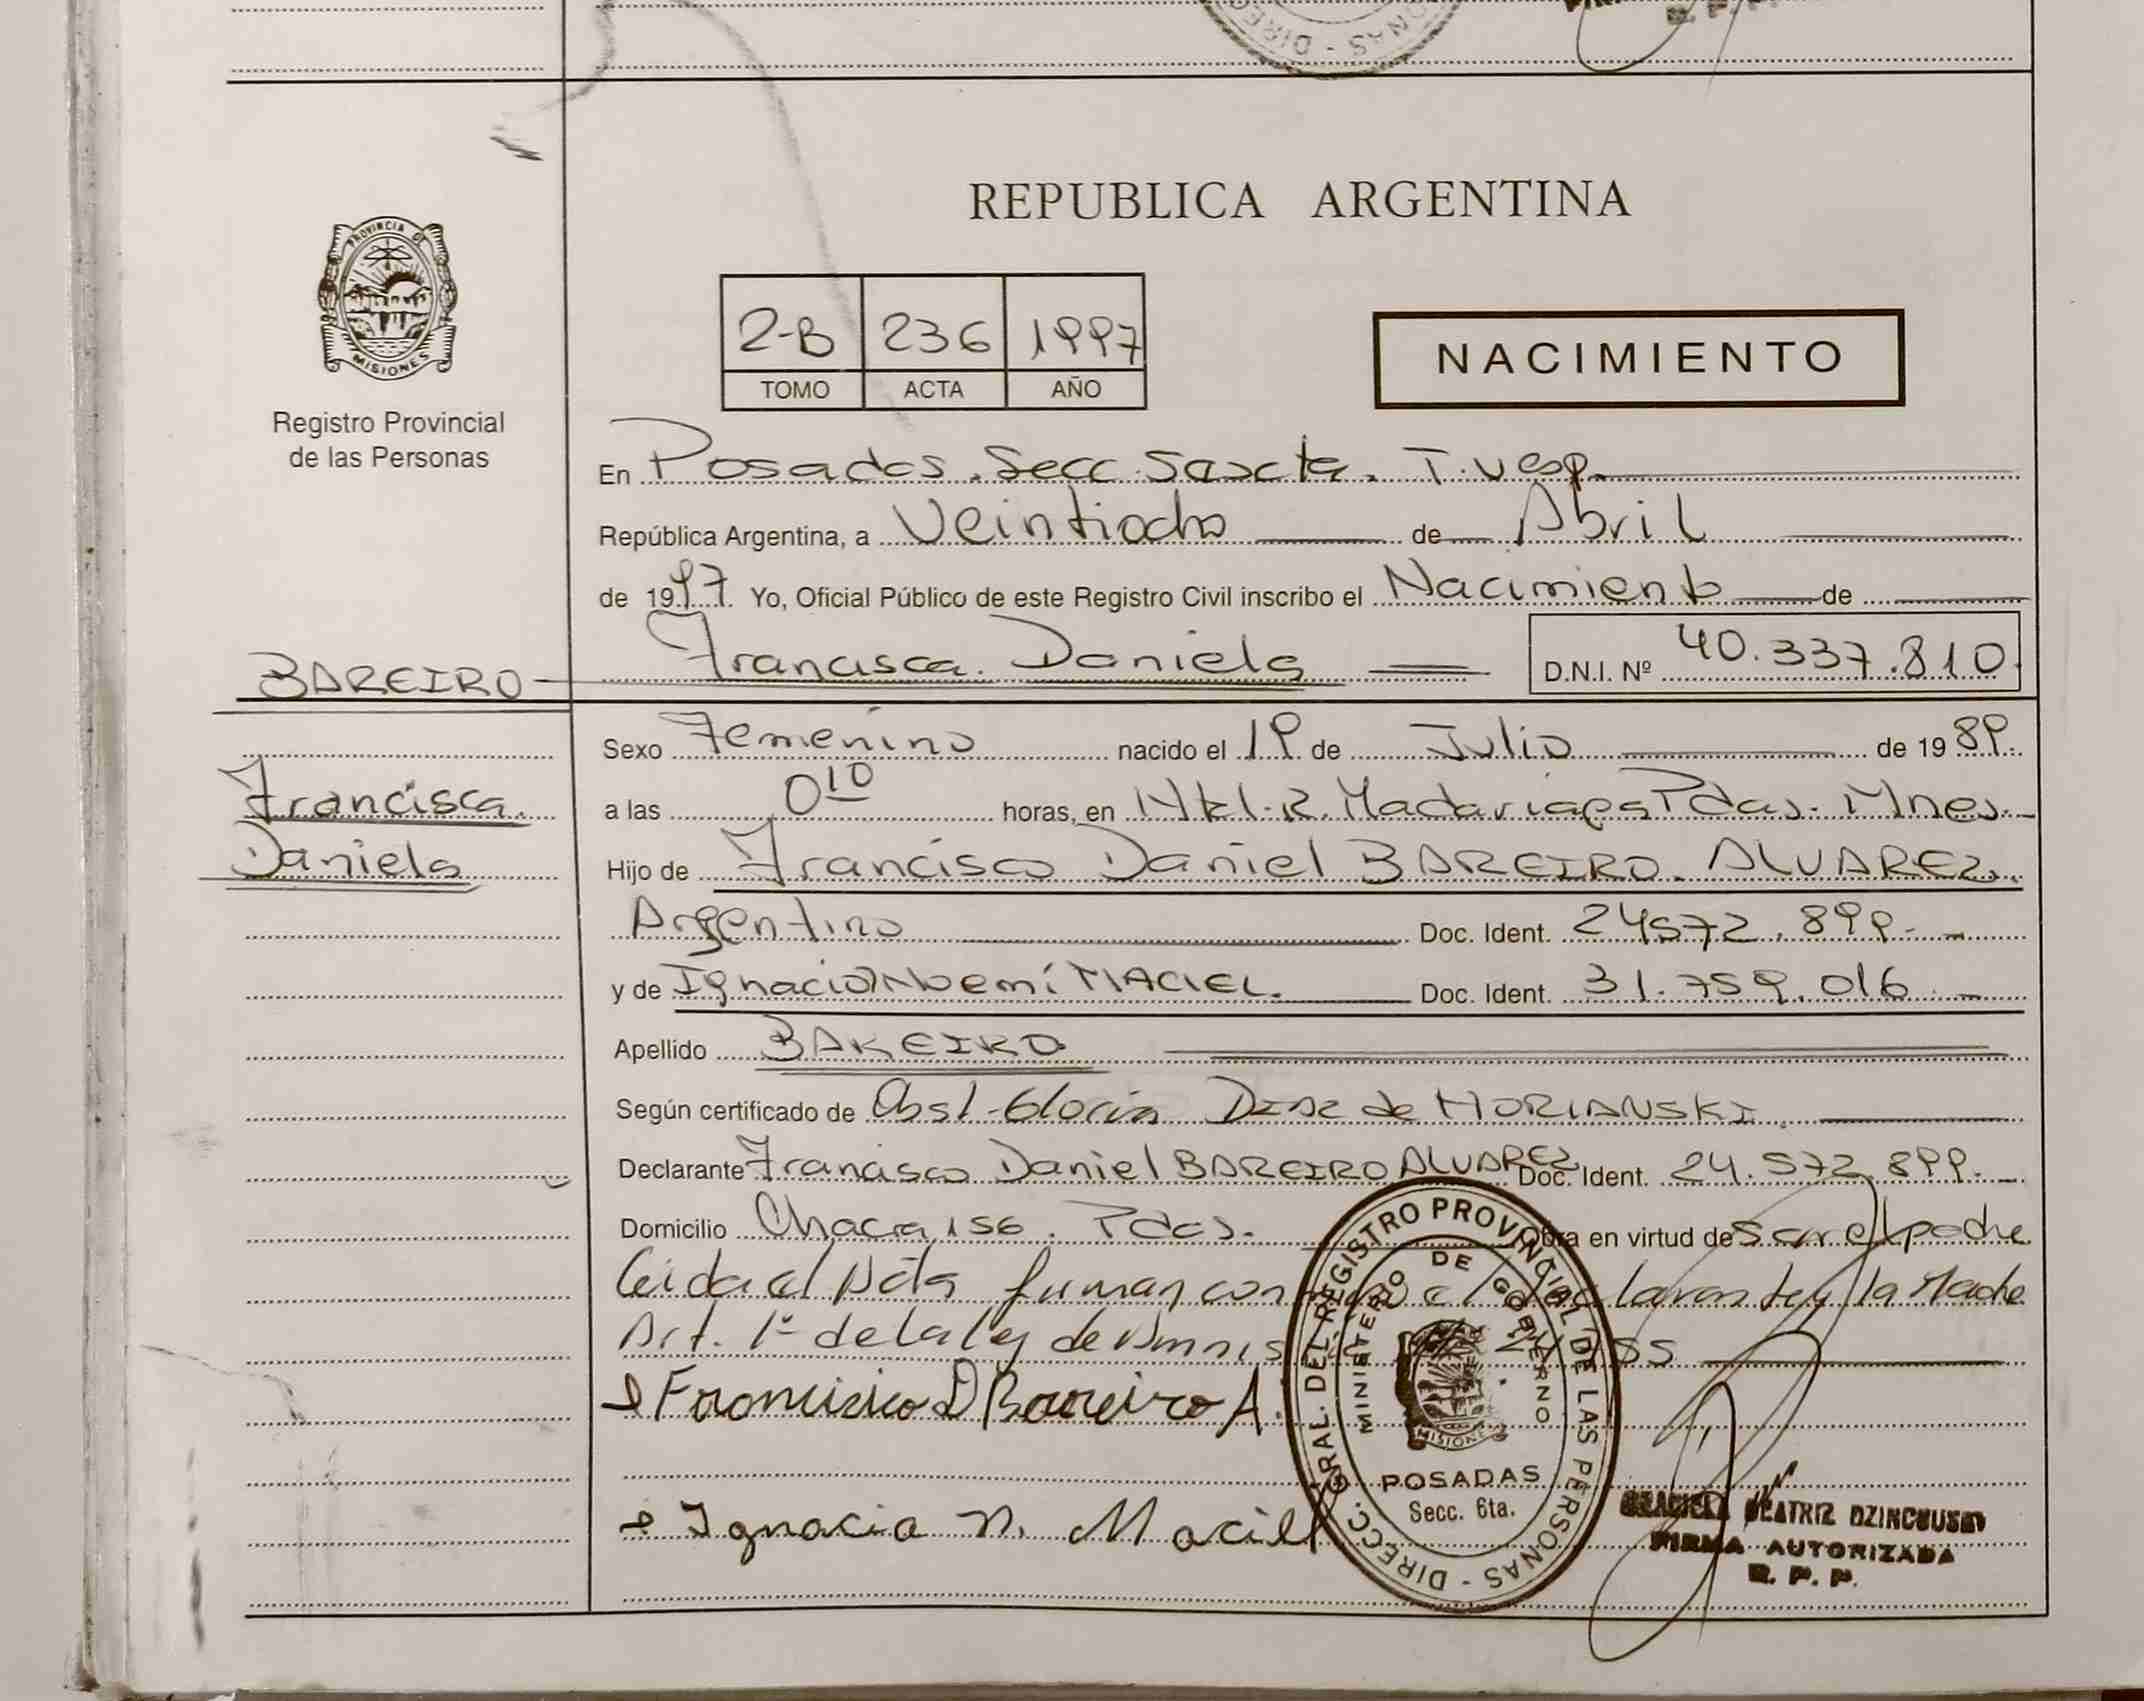 PROVINCIA DE
MISIONES
Registro Provincial
de las Personas
REPUBLICA ARGENTINA
2-B 236 1997
TOMO ACTA AÑO
NACIMIENTO
En Posadas. Secc. Sexta. T. vesp.
República Argentina, a Veintiocho de Abril
de 1997 Yo, Oficial Público de este Registro Civil inscribo el Nacimiento de
BAREIRO Francisca Daniela D.N.I. Nº 40.337.810
Sexo Femenino nacido el 19 de Julio de 1989
Francisca
Daniela
a las 0 10 horas, en Htal. R. Madariaga Pdas. Mnes.
Hijo de Francisco Daniel BAREIRO ALVAREZ.
Argentino Doc. Ident. 24572.899
y de Ignacia Noemí MACIEL. Doc. Ident. 31.759.016
Apellido BAREIRO
Según certificado de Obst. Gloria DIAZ de MORIANSKI
Declarante Francisco Daniel BAREIRO ALVAREZ Doc. Ident. 24.572.899.
Domicilio Chacra 156. Pdas. Obra en virtud de ser el padre
Leida el Acta firman con el declarante y la Madre
Art. 1º de la ley de Amnis
Francisco D Bareiro A.
Ignacia N. Maciel
DIRECC. GRAL. DEL REGISTRO PROVINCIAL DE LAS PERSONAS
MINISTERIO DE GOBIERNO
MISIONES
POSADAS
Secc. 6ta.
BEATRIZ
FIRMA AUTORIZADA
R. P. P.